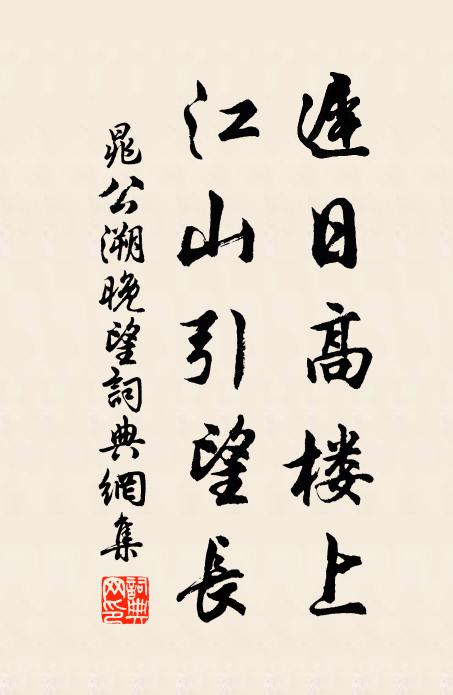 遲日高楼上
江山引望長
晁公溯晚望詞典網集
詞典网印